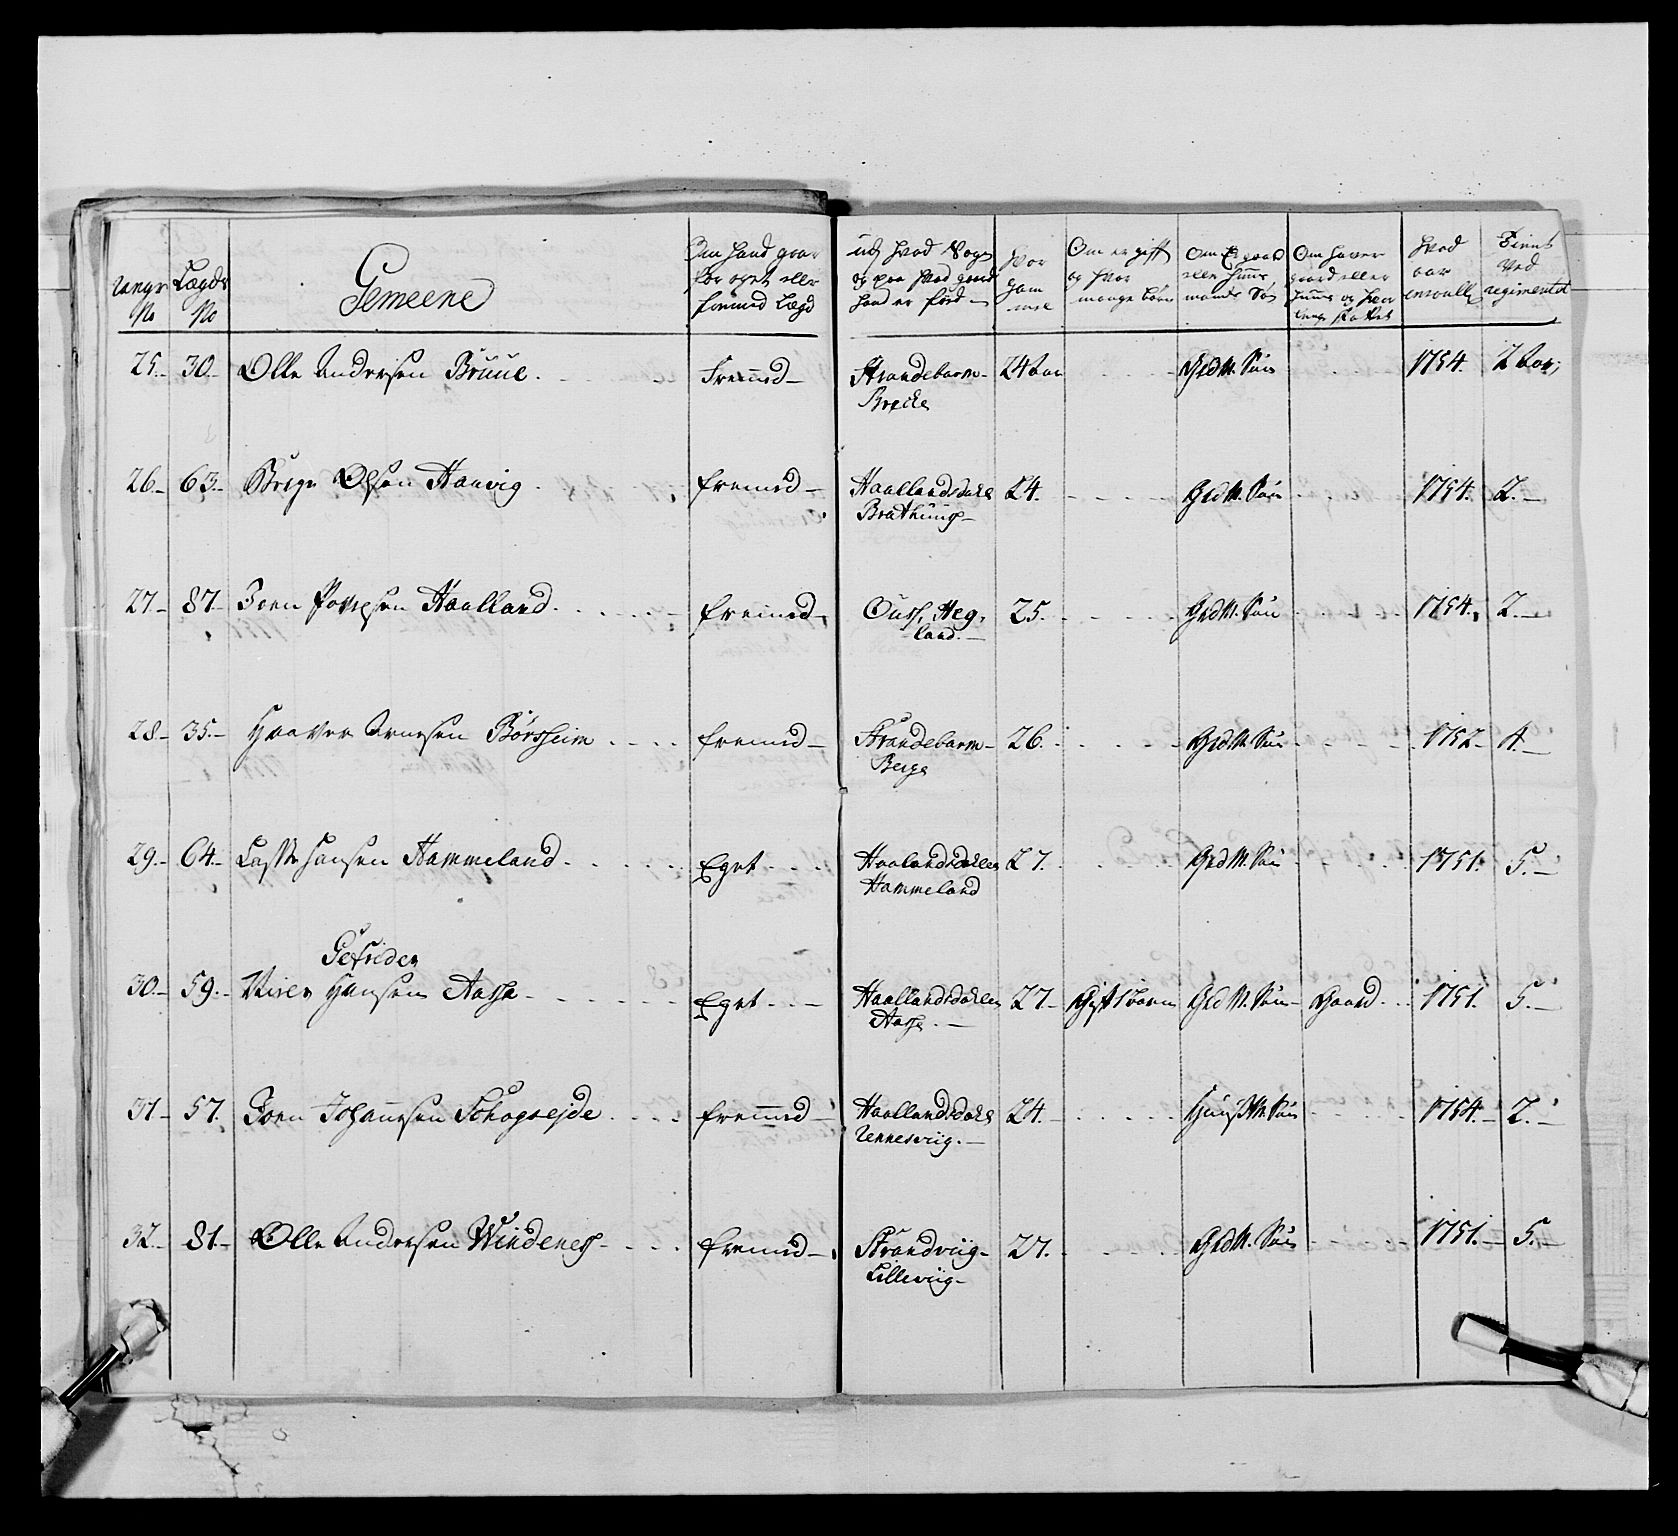 Rangs No | Lægds No | Gemeene | Om hand gaar for eget eller fremmed Lægd | udj hvad Sogn og paa hvad gaard hand er fød | Hvor gammel | Om er gift og hvor mange børn | Om Er gaard eller huus mands Søn | Om haver gaard eller huus og hvor | hvad aar enroull | Tient ved regimentet
25. | 30. | Olle Andersen Bruue | Fremed | Strandebarm Brecke | 24 aar | | Grd M. Søn | | 1754. | 2 aar
26. | 63. | Børge Olsen Haavig | fremed | Haallandsdalen Brathuus | 24. | | Grd M. Søn | | 1754. | 2.
27. | 87. | Joen Povelsen Haalland | fremed | Ouss, Heg, land. | 25. | | Grd M. Søn | | 1754. | 2.
28. | 35. | Haaver Arnesen Børsheim | fremed | Strandebarm Berge | 26. | | Grd M. Søn | | 1752 | 4.
29. | 64. | Lasse Hansen Hammeland | Eget | Haalandsdallen Hammeland | 27. | | Grd M. Søn | | 1751. | 5.
Gefrider
30. | 59. | Hansen Aasse | Eget | Haallandsdallen Aasse. | 27. | Gift 1 barn | Grd M. Søn | Gaard | 1751. | 5.
31 | 57. | Joen Johannesen Schogsejde | fremmed | Haallandsdalen Rennesviig. | 24. | | Huus M. Søn | | 1754. | 2.
32. | 81. | Olle Andersen Windenes | fremed | Strandviig Lilleviig | 27. | | Grd M. Søn | | 1751. | 5.